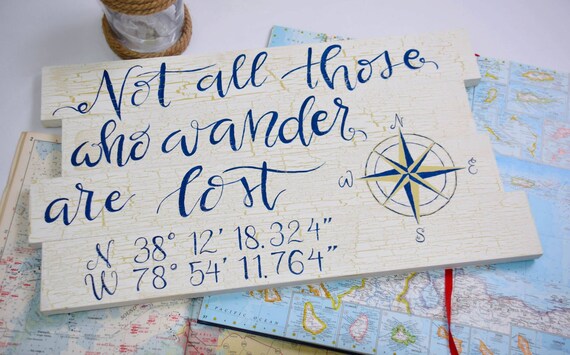 Not all those
who wander
are lost
N 38° 12' 18.324"
W 78° 54' 11.764"
N
W
E
S